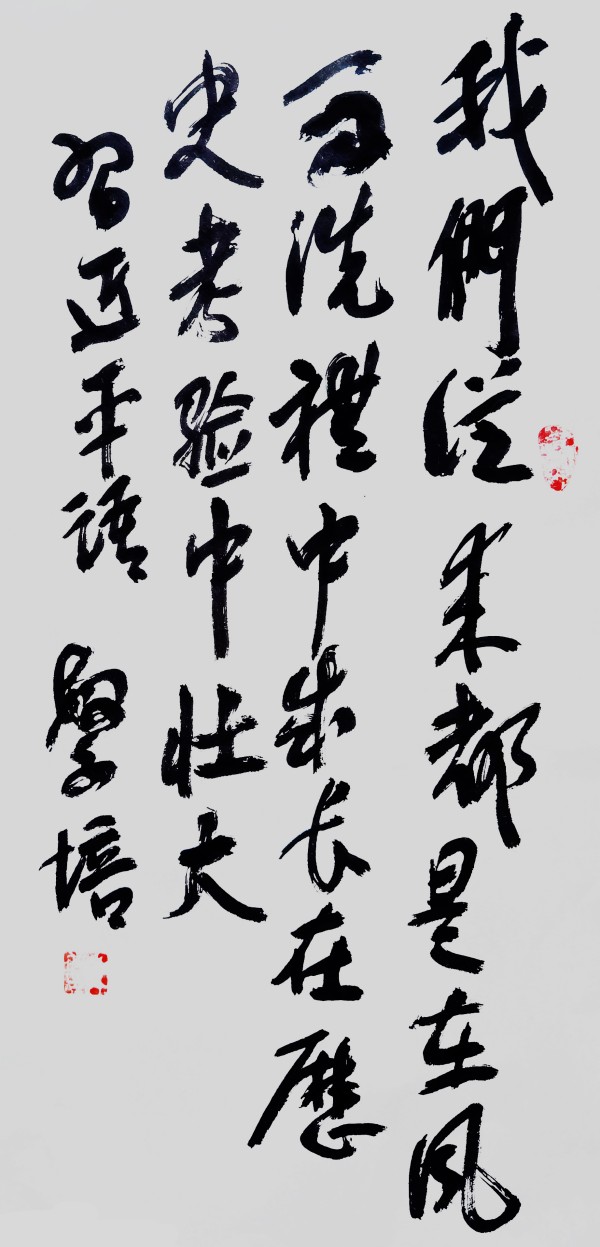 我們從来都是在风
雨洗禮中成长在歷
史考验中壮大
習近平語 學培